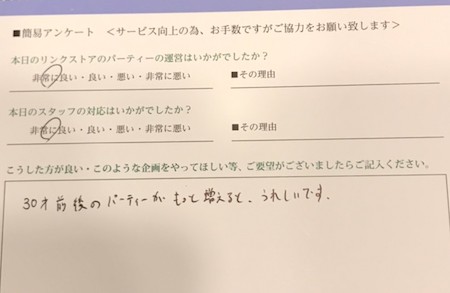 ■簡易アンケート <サービス向上の為、お手数ですがご協力をお願い致します>
本日のリンクストアのパーティーの運営はいかがでしたか?
非常に良い・良い・悪い・非常に悪い ■その理由
本日のスタッフの対応はいかがでしたか?
非常に良い・良い・悪い・非常に悪い ■その理由
こうした方が良い・このような企画をやってほしい等、ご要望がございましたらご記入ください。
30才前後のパーティーがもっと増えると、うれしいです。